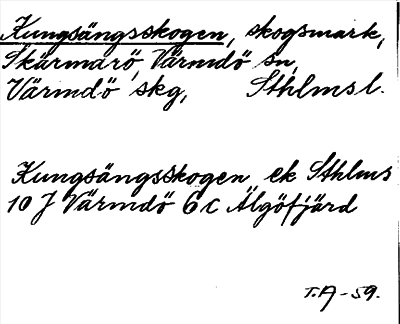 Kungsängsskogen, skogsmark,
Skärmarö, Värmdö sn,
Värmdö skg, Sthlmsl.
Kungsängsskogen ek Sthlms
10 J Värmdö 6c Älgöfjärd
T.A-59.